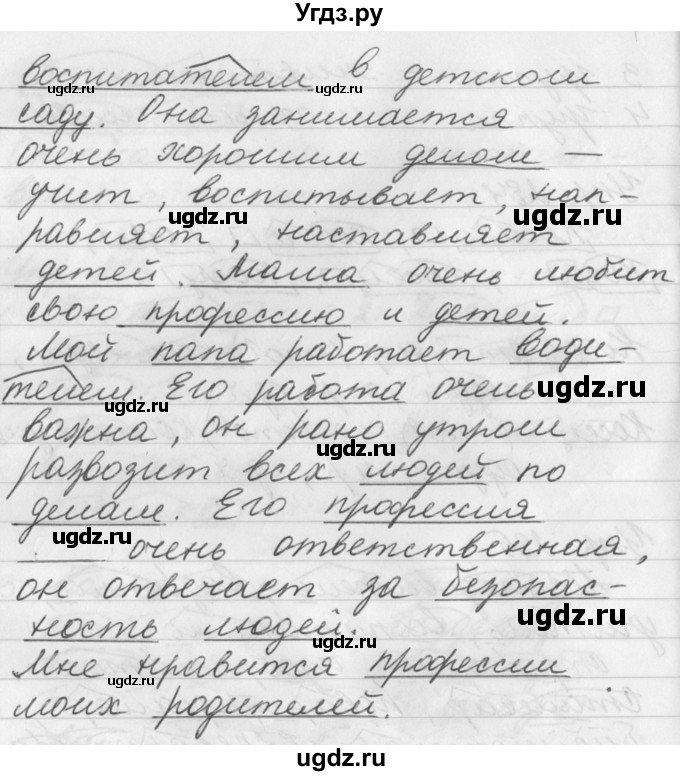 Угдз.ру
воспитателем в детском
саду. Она занимается
очень хорошим делом –
учит, воспитывает, нап-
равляет, наставляет
детей. Маша очень любит
свою профессию и детей.
Мой папа работает води-
телем. Его работа очень
важна, он рано утром
развозит всех людей по
делам. Его профессия
очень ответственная,
он отвечает за безопас-
ность людей.
Мне нравится профессии
моих родителей.
ugdz.ru
ugdz.ru
ugdz.ru
ugdz.ru
ugdz.ru
ugdz.ru
ugdz.ru
ugdz.ru
ugdz.ru
ugdz.ru
ugdz.ru
ugdz.ru
ugdz.ru
ugdz.ru